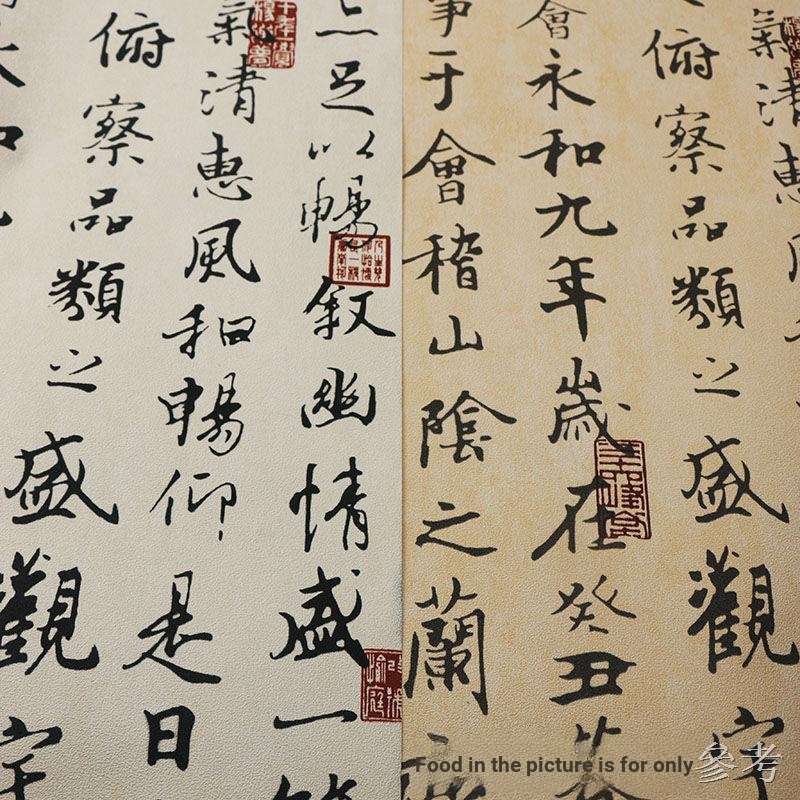 氣清惠風
俯察品類之盛觀宇
會永和九年歲在癸丑暮
事于會稽山陰之蘭
足以暢叙幽情盛一
氣清惠風和暢仰是日
俯察品類之盛觀宇
Food in the picture is for only參考